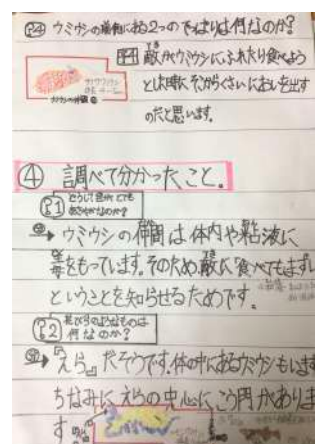 問4 ウミウシの両側にある2つのでっぱりは何なのか?
予想 敵がウミウシにふれたり食べよう
とした時にそこからくさいにおいを出す
のだと思います。
④ 調べて分かったこと。
問1 どうして色がとても
あざやかなのか?
ウミウシの仲間は体内や粘液に
毒をもっています。そのため敵に「食べてもまずい
ということを知らせるためです。
問2 花びらのようなものは
何なのか?
『えら』だそうです。体の中にあるウミウシもいます
ちなみにえらの中心にこう門があります
す